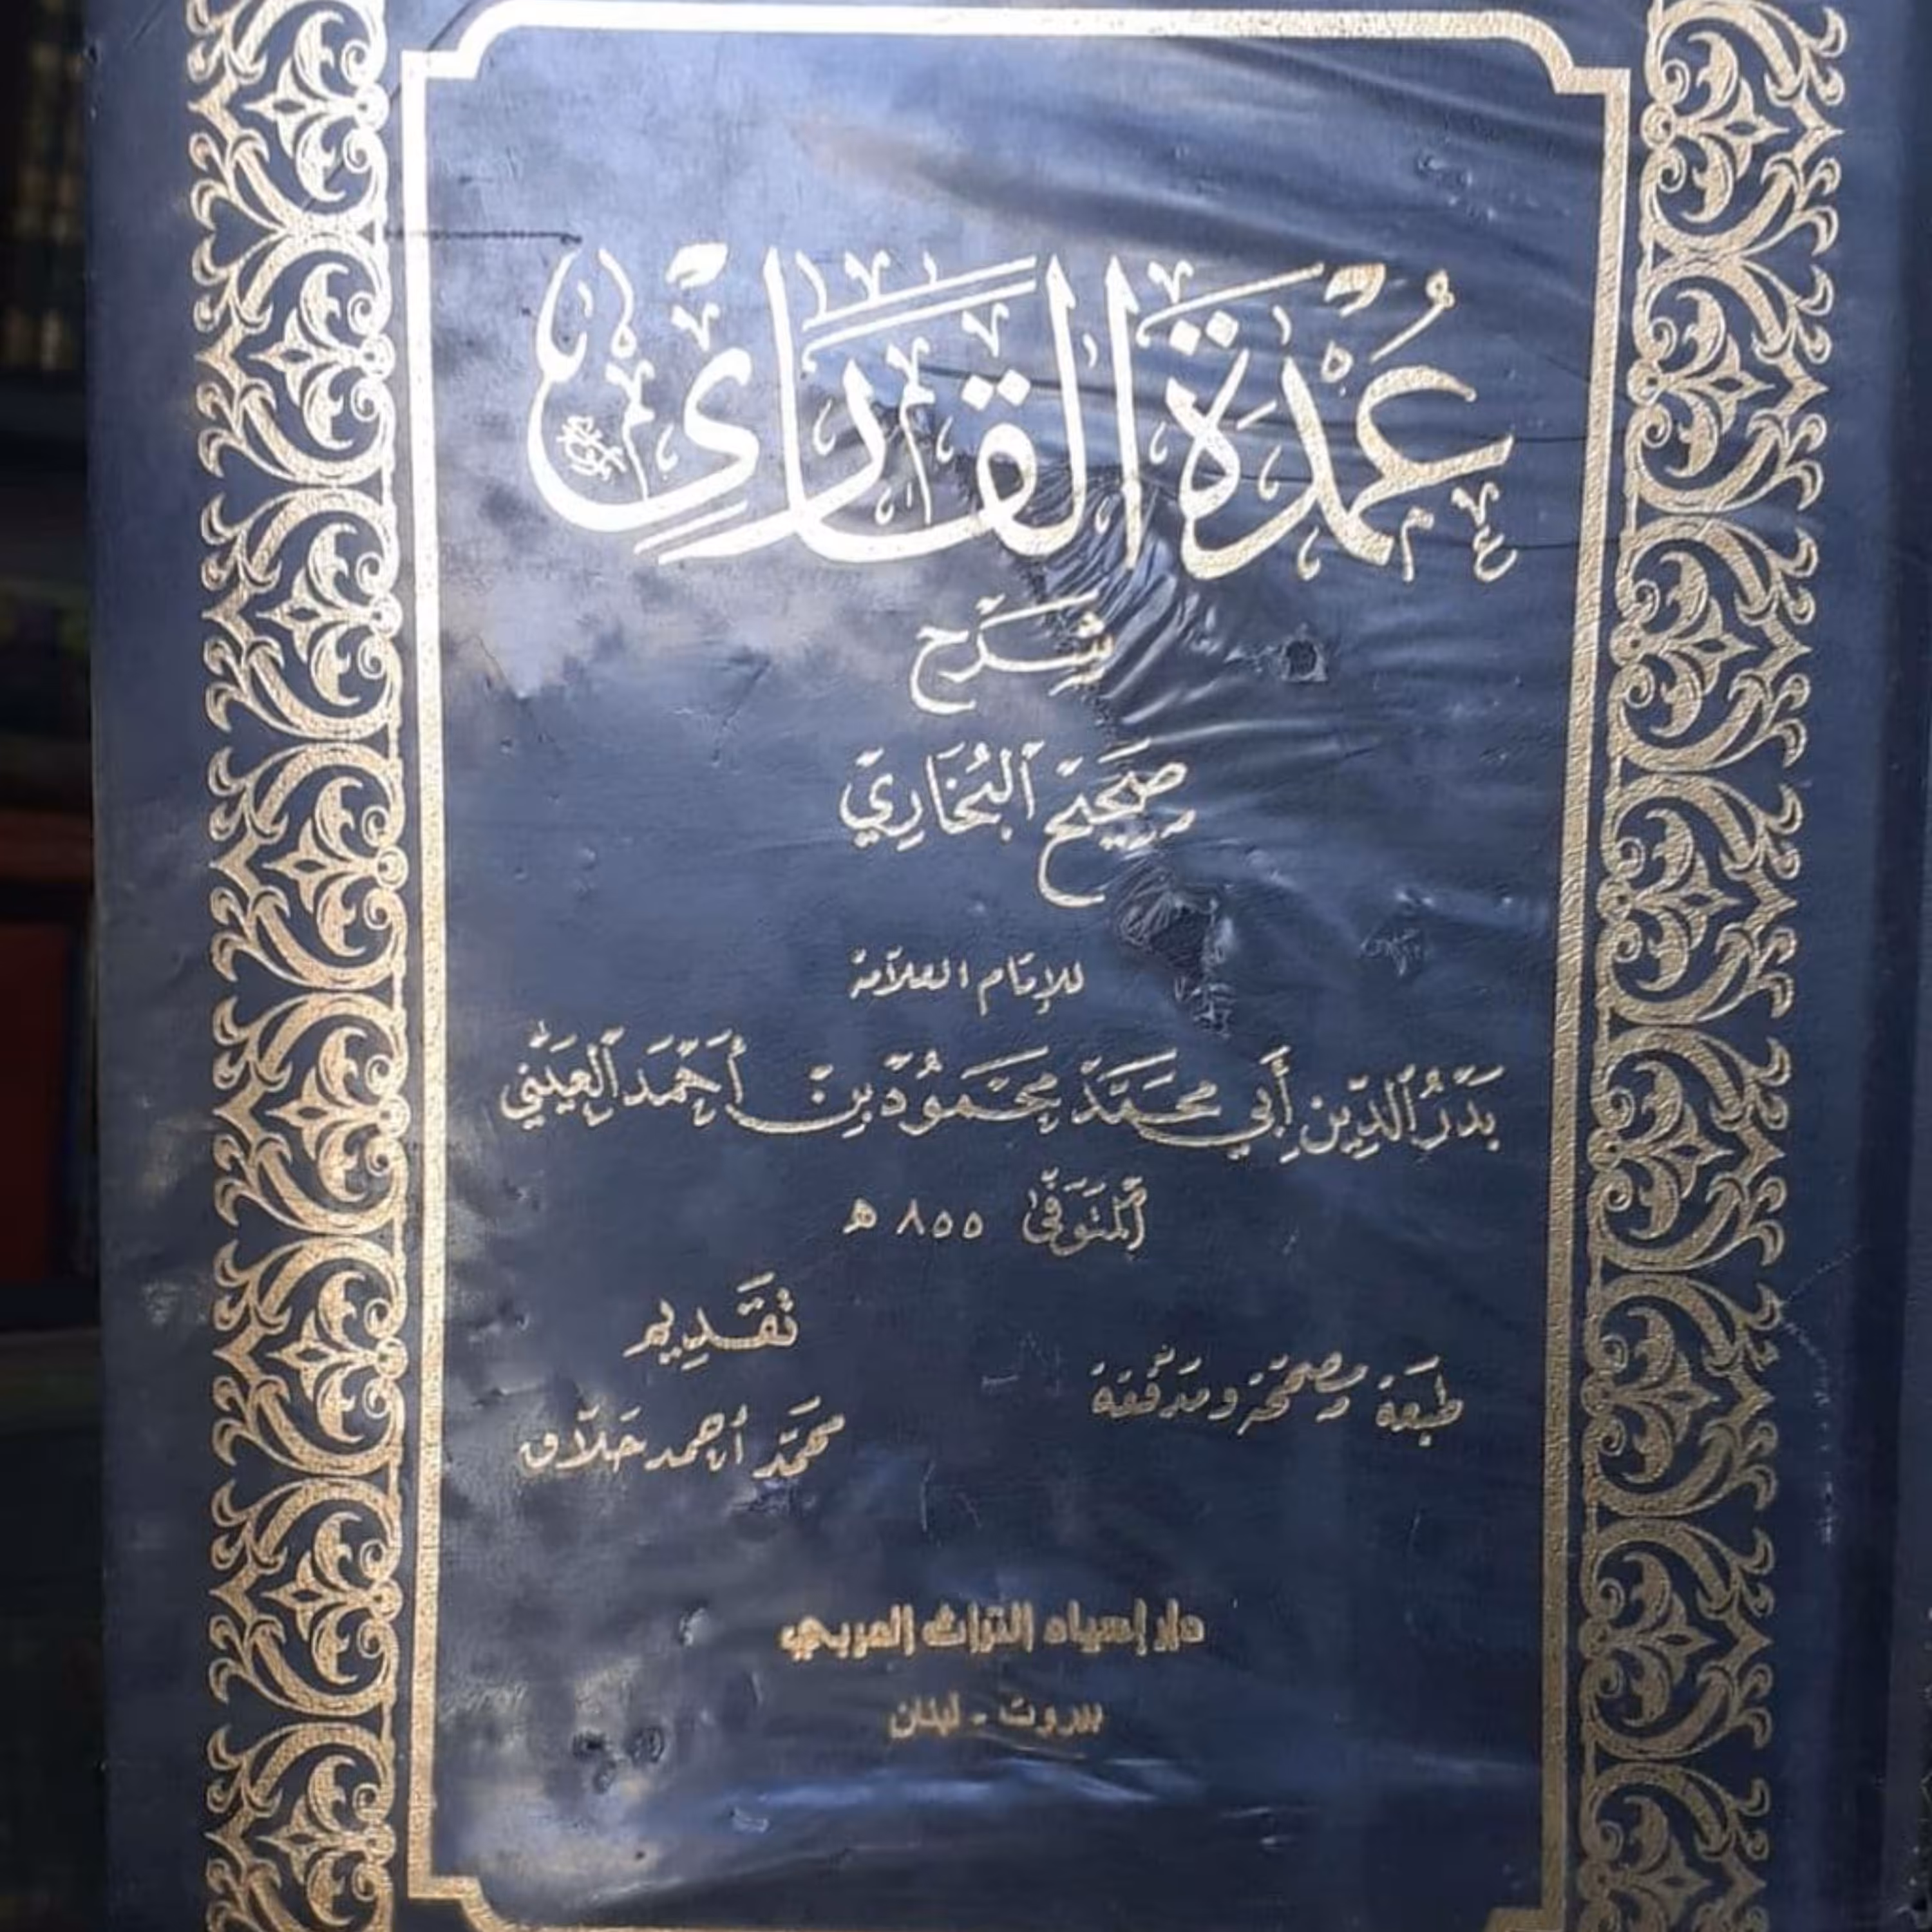 عُمْدَةُ القَارِئ
شَرْح
صَحِيح البُخَارِي
للإمَام العَلاّمة
بَدْرُ الدِّين أَبِي مُحَمَّد مَحْمُود بِن أَحْمَد العَيْنِي
المُتَوَفَّى ٨٥٥ ه
تَقْدِيم
محمَّد أحمد حَلاّق
طبعَة مصَحّحَة ومدقّقة
دار إحياء التراث العربي
بيروت - لبنان